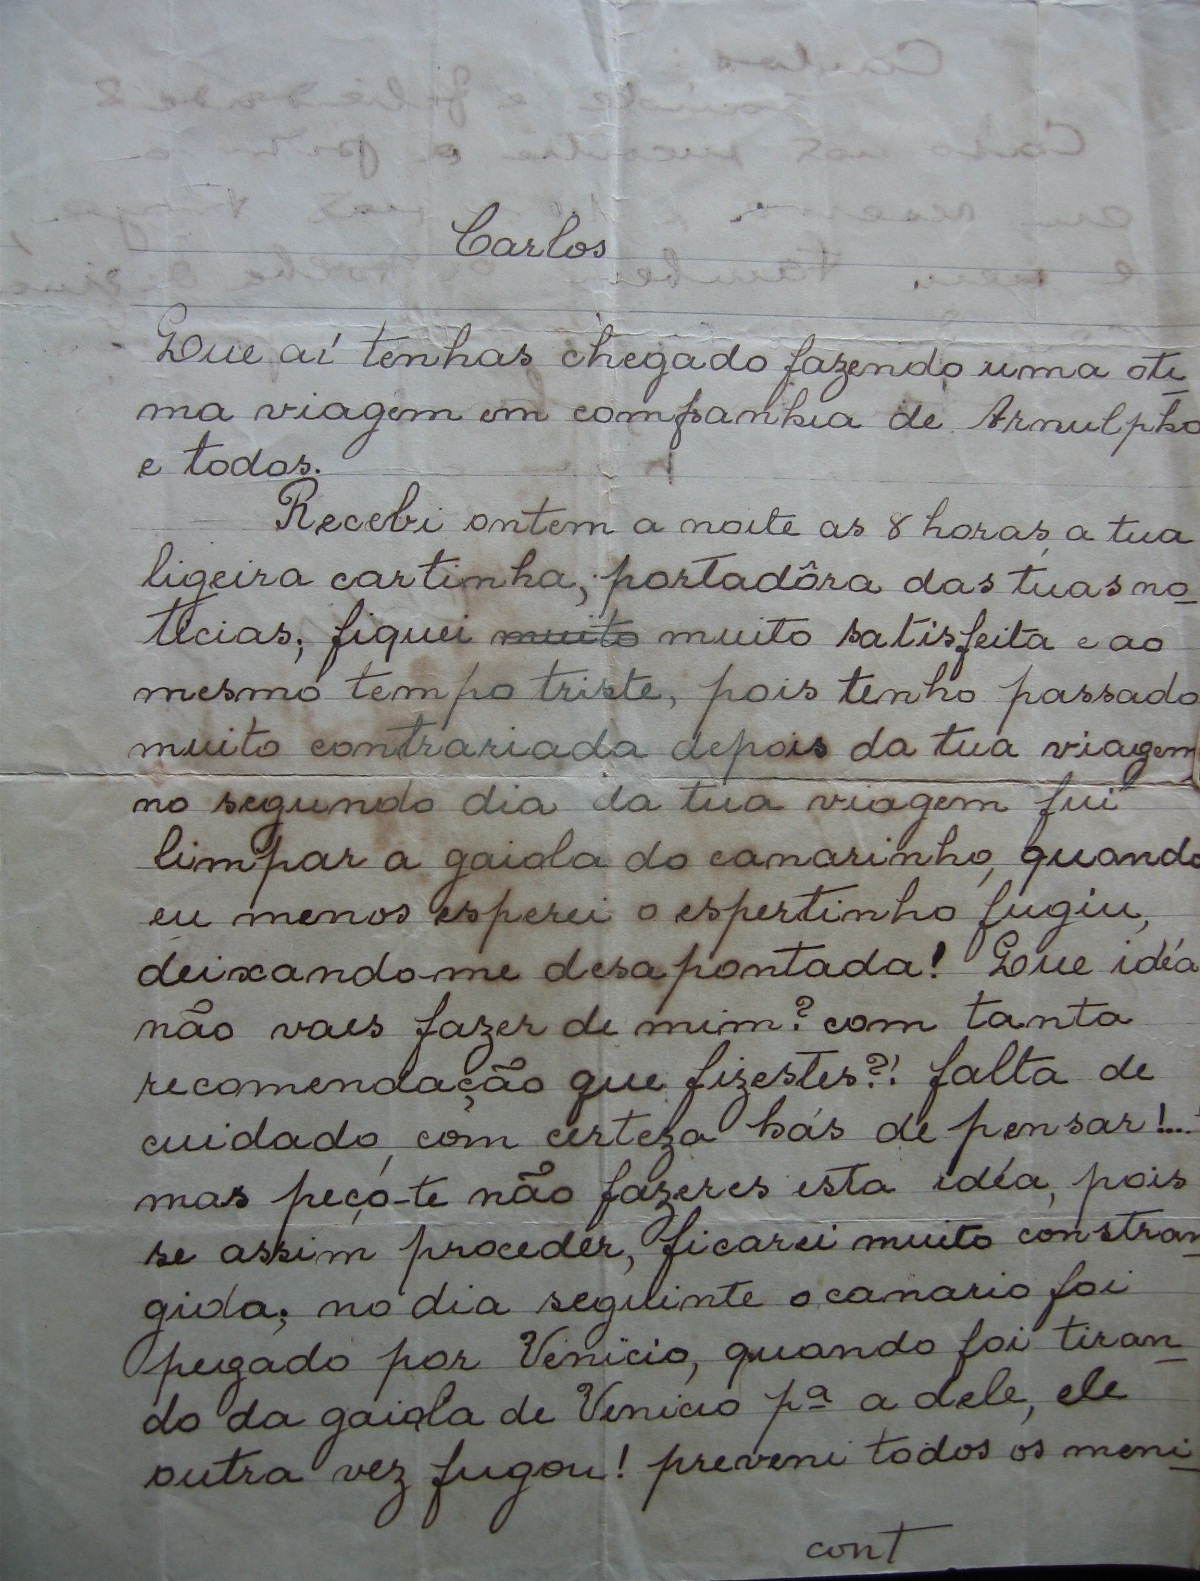 Carlos
Que aí tenhas chegado fazendo uma oti-
ma viagem em companhia de Arnulpho
e todos.
Recebi ontem a noite as 8 horas, a tua
ligeira cartinha, portadôra das tuas no-
ticias; fiquei muito muito satisfeita e ao
mesmo tempo triste, pois tenho passado
muito contrariada depois da tua viagem
no segundo dia da tua viagem fui
limpar a gaiola do canarinho, quando
eu menos esperei o espertinho fugiu,
deixando-me desapontada! Que idéa
não vaes fazer de mim? com tanta
recomendação que fizestes?! falta de
cuidado, com certeza hás de pensar!...
mas peço-te não fazeres esta idéa, pois
se assim proceder, ficarei muito constran-
gida; no dia seguinte o canario foi
pegado por Venicio, quando foi tiran-
do da gaiola de Venicio pª a dele, ele
outra vez fugou! preveni todos os meni-
cont